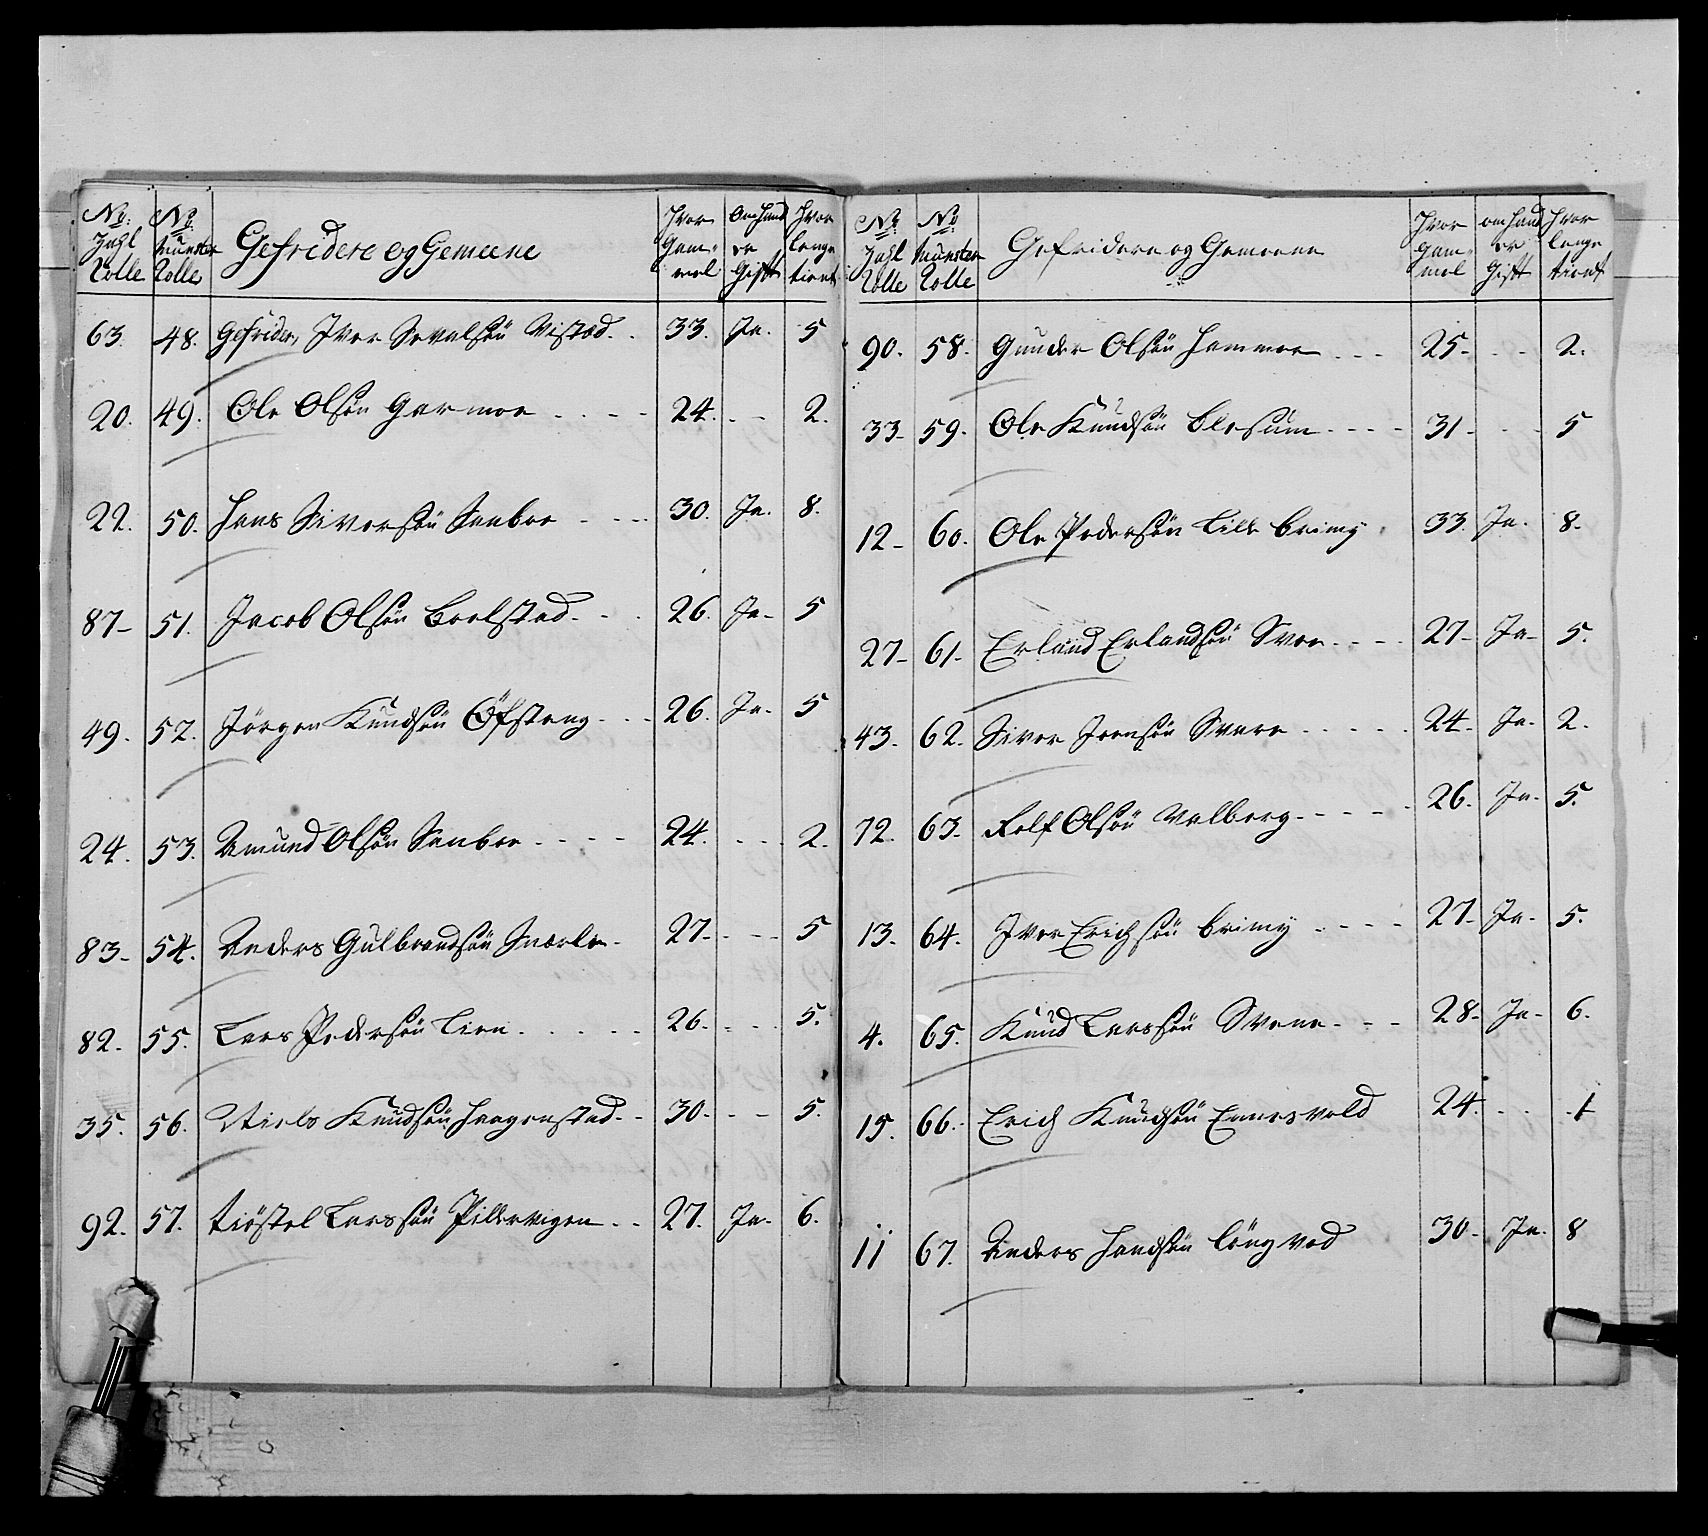 No: Zahl Rolle | No Münster Rolle | Gefridere og Gemeene | Hvor Gam- mel | Om hand er Gift | Hvor lenge tient
63. 48. Gefrider, Iver Sevalsøn Wistad. . 33. Ja. 5
20. 49. Ole Olsøn Garmoe . . . . 24. - - 2.
22. 50. Hans Siversøn Sanboe - - - 30. Ja. 8.
87- 51. Jacob Olsøn Boelstad. . . 26. Ja- 5
49. 52. Jörgen Knudsøn Öfsteng. . . 26. Ja. 5
24. 53. Amund Olsøn Sanboe . . . . 24. . . . 2.
83- 54. Anders Gulbrandsøn Snærle . 27. . . . 5
82. 55. Lars Pedersøn Lien . . . . . 26. . . . 5.
35. 56. Niels Knudsøn Haagenstad. . 30. - - 5.
92. 57. Tiöstel Larssøn Pillervigen . . 27. Ja. 6.
No. Zahl Rolle | No Münster Rolle | Gefridere og Gemeene | Hvor gam- mel | om hand er Gift | Hvor lenge tient
90. 58. Gunder Olsøn Hammer . . . 25- . . 2.
33- 59. Ole Knudsøn Blesum . . . . 31- . . 5
12- 60. Ole Pedersøn Lille Brimy . 33. Ja. 8.
27- 61- Erland Erlandsøn Svee . . . . 27- Ja- 5.
43. 62. Siver Joensøn Svare . . . . . 24. Ja. 2.
72. 63. Rolf Olsøn Valberg . . . . . 26. Ja. 5.
13. 64. Iver Erichsøn Brimy . . . . 27- Ja. 5.
4. 65. Knud Larssøn Svene . . . 28- Ja- 6.
15. 66. Erich Knudsøn Emersvold 24. . . . 1
11 67. Anders Handsøn Löngvod 30- Ja. 8